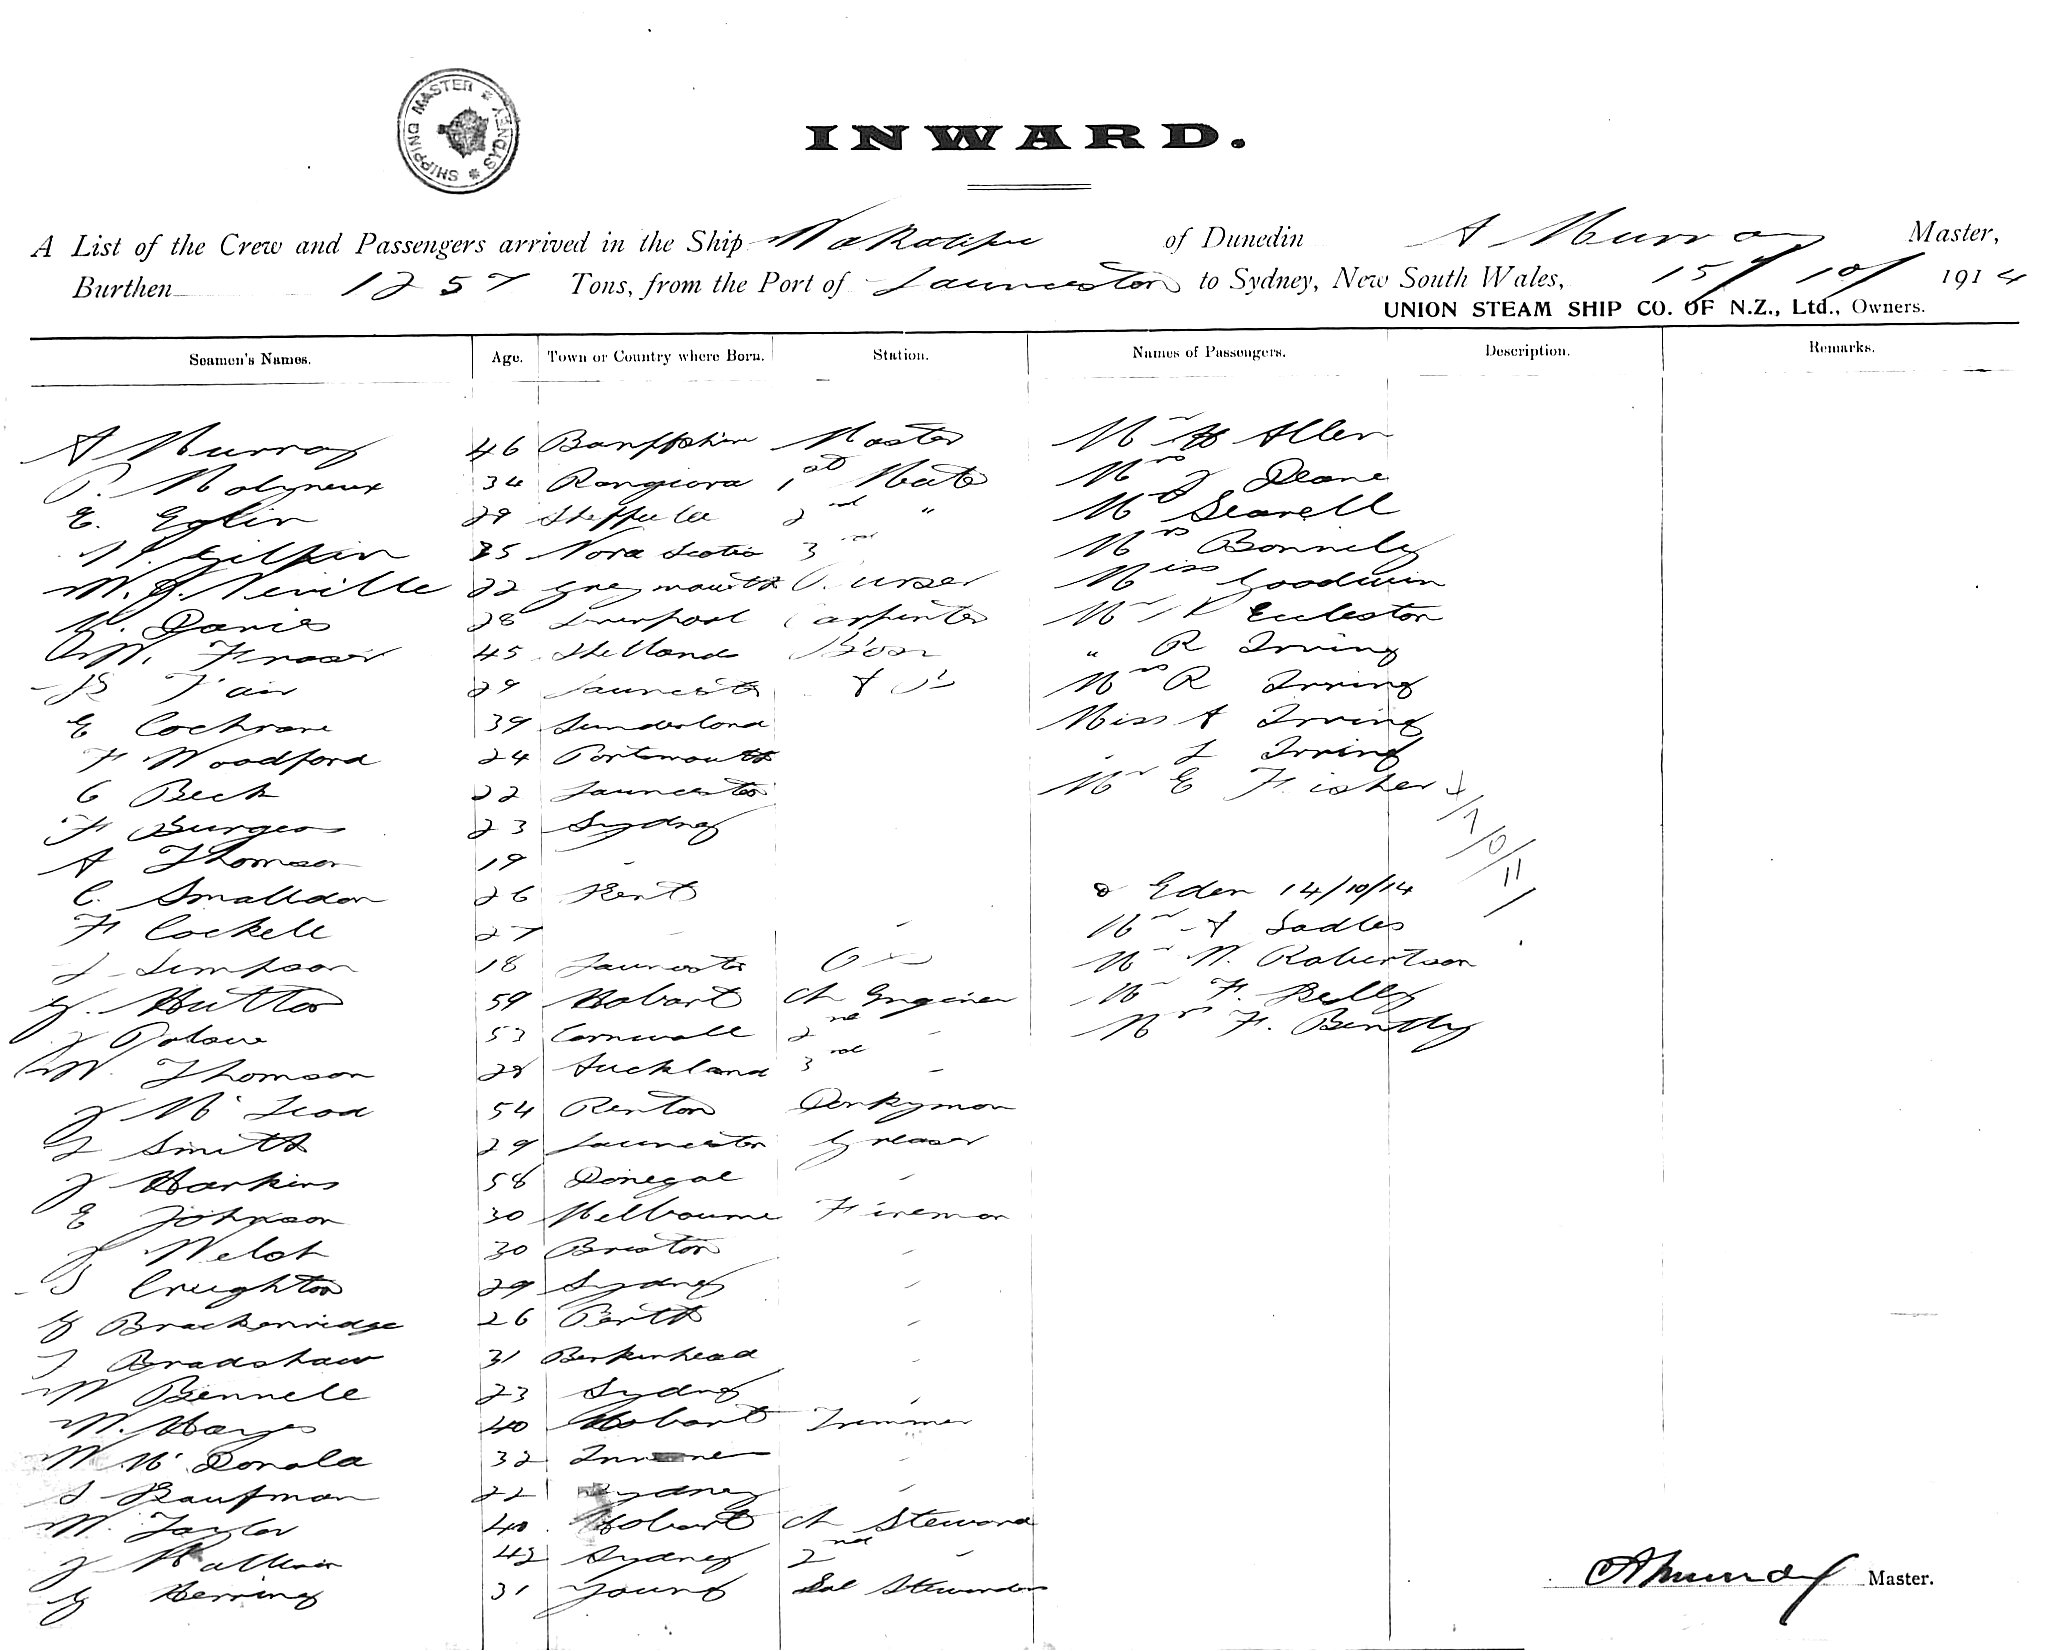 SHIPPING MASTER * SYDNEY *
INWARD.
A List of the Crew and Passengers arrived in the Ship Wakatipu of Dunedin A Murray Master,
Burthen 1257 Tons, from the Port of Launceston to Sydney, New South Wales, 15/10/1914
UNION STEAM SHIP CO. OF N.Z., Ltd., Owners.
Seamen's Names. Age. Town or Country where Born. Station. Names of Passengers. Description. Remarks.
A Murray 46 Banffshire Master Mr H Allen
P. Molyneux 34 Rangiora 1st Mate Mrs J Deane
E. Eglin 29 Sheffield 2nd " Mr Searell
Gilpin 25 Nova Scotia 3rd Mrs Bonnily
W. J. Neville 22 Greymouth Purser Miss Goodwin
Davies 28 Liverpool Carpenter Mr Eccleston
W. Fraser 45 Shetland Bosn " R Irving
Fair 29 Launceston A B Mrs R Irving
E Cochrane 39 Sunderland Miss A Irving
F Woodford 24 Portsmouth L Irving
C Beck 22 Launceston Mr E Fisher
F Burgess 23 Sydney
A Thomson 19
C. Smalldon 26 Kent Eden 14/10/14
F Cockell 27 Mr A Sadler
J Simpson 18 Launceston OS Mr W. Robertson
Hutton 59 Hobart Ch Engineer Mr F. Kelly
J 53 Cornwall 2nd Mrs F. Bently
W. Thomson 28 Auckland 3rd
J McLeod 54 Renton Donkyman
J Smith 29 Launceston Greaser
J Harkins 58 Donegal
E Johnson 30 Melbourne Fireman
J Welch 30 Bristol
Creighton 29 Sydney
G Brackenridge 26 Perth
J Bradshaw 31 Berkinhead
W Bennell 23 Sydney
W. Hayes 40 Hobart Trimmer
W McDonald 32
S Kaufman 22 Sydney
W. Taylor 40 Hobart Ch Steward
J 42 Sydney 2nd
G Herring 31 Young Sal Stewardess
A Murray Master.